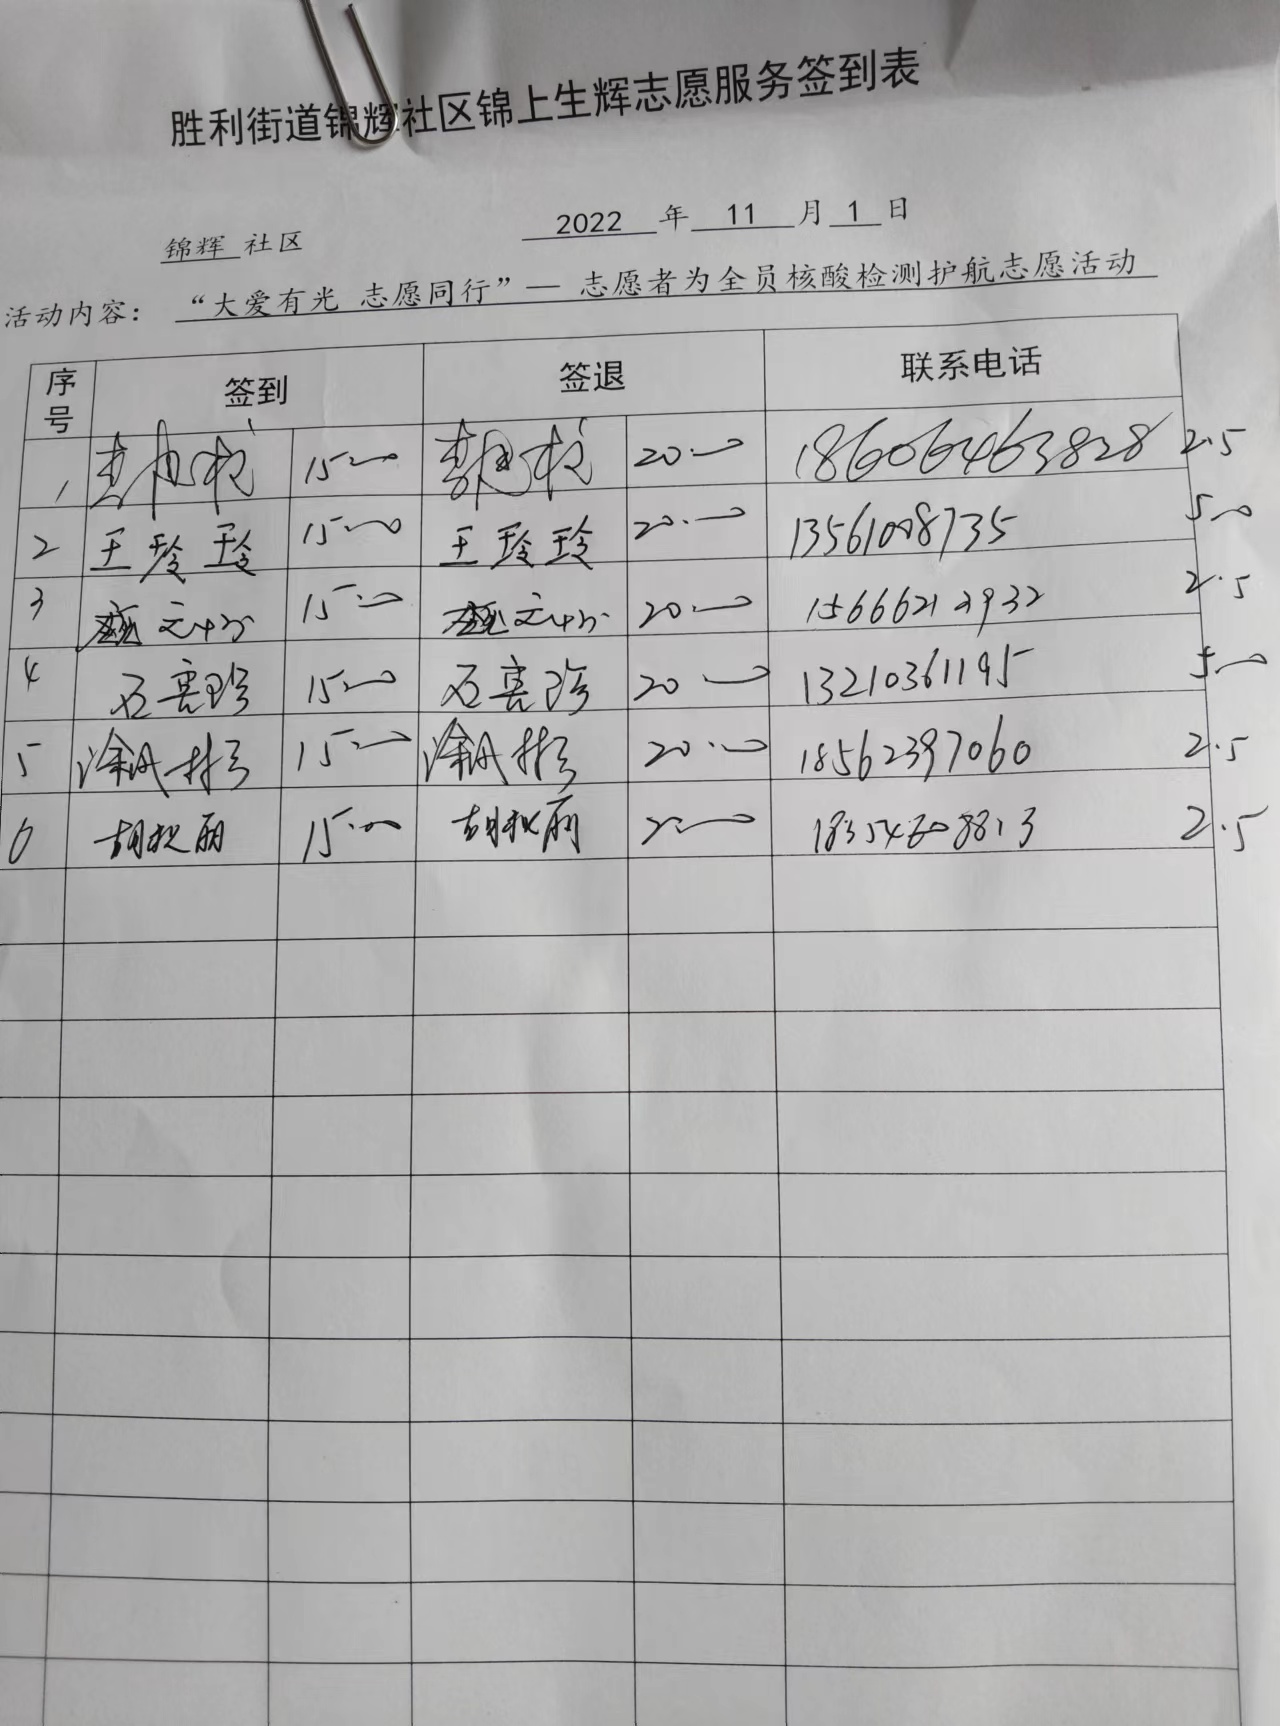 胜利街道锦辉社区锦上生辉志愿服务签到表
锦辉 社区 2022 年 11 月 1 日
活动内容： “大爱有光 志愿同行”— 志愿者为全员核酸检测护航志愿活动
序号 签到 签退 联系电话
1 15:00 20:00 18606463828 2.5
2 王玲玲 15:00 王玲玲 20:00 13561008735 5:00
3 15:00 20:00 15666212932 2.5
4 石喜珍 15:00 石喜珍 20:00 13210361195 5:00
5 15:00 20:00 18562397060 2.5
6 15:00 20:00 2.5